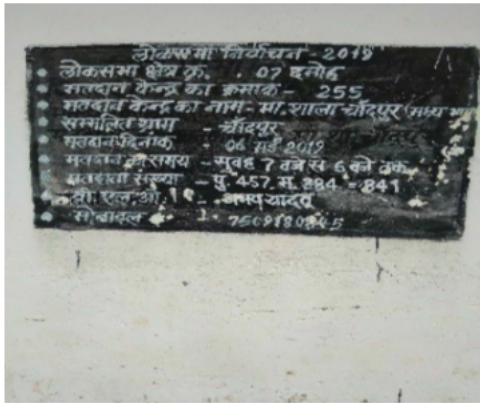 लोकसभा निर्वाचन - 2019
लोकसभा क्षेत्र क्र. - 07 दमोह
मतदान केन्द्र का क्रमांक - 255
मतदान केन्द्र का नाम - मा. शाला चाँदपुर (मध्य भाग
सम्मिलित ग्राम - चाँदपुर
मतदान दिनांक - 06 मई 2019
मतदान का समय - सुबह 7 बजे से 6 बजे तक
मतदाता संख्या - पु. 457 म. 384 = 841
बी. एल. ओ. - यादव
मोबाइल -